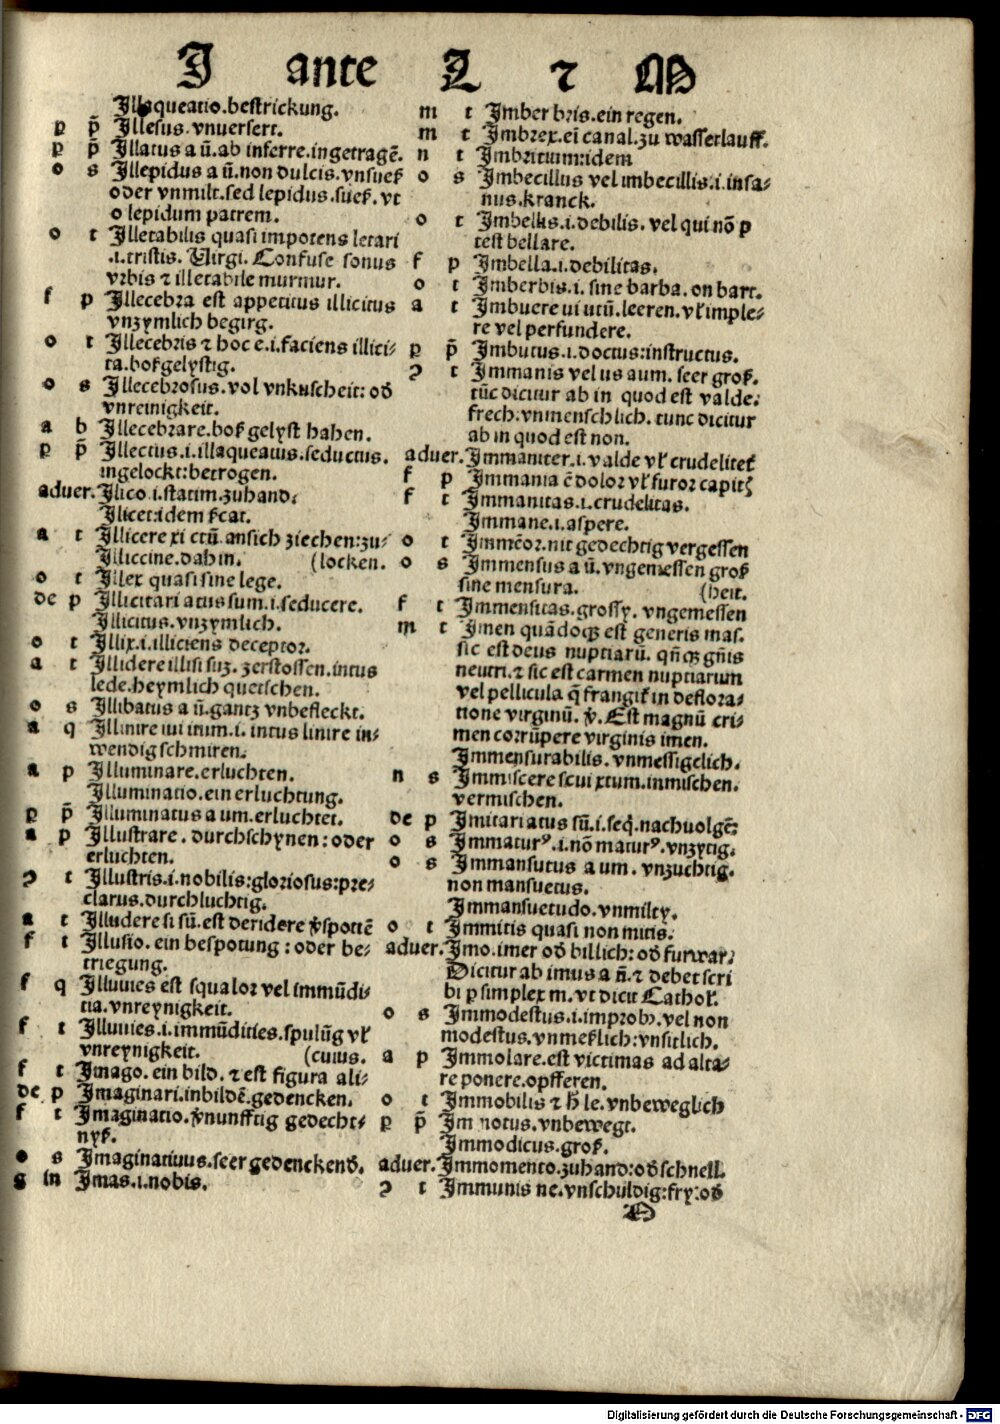 I ante L ⁊ M
Illaqueatio.bestrickung.
p p̄ Illesus.vnuersert.
p p̄ Illatus a ū.ab inferre.ingetragē.
o s Illepidus a ū.non dulcis.vnsueß
oder vnmilt.sed lepidus.sueß.vt
o lepidum patrem.
o t Illetabilis quasi impotens letari
.i.tristis. Virgi. Confuse sonus
vrbis ⁊ illetabile murmur.
f p Illecebra est appetitus illicitus
vnzymlich begirg.
o t Illecebris ⁊ hoc e.i.faciens illici-
ta.boßgelystig.
o s Illecebrosus.vol vnkuscheit: od̄
vnreinigkeit.
a b Illecebrare.boß gelyst haben.
p p̄ Illectus.i.illaqueatus.seductus.
ingelockt:betrogen.
aduer. Ilico.i.statim.zuhand.
Ilicet:idem ſcat.
a t Illicere xi ctū.ansich ziechen:zu-
Illiccine.dahin. (locken.
o t Illex quasi sine lege.
de p Illicitari atus sum.i.seducere.
Illicitus.vnzymlich.
o t Illix.i.illiciens deceptor.
a t Illidere illisi suz. zerstossen.intus
lede.heymlich quetschen.
o s Illibatus a ū.gantz vnbefleckt.
a q Illinire iui itum.i. intus linire in-
wendig schmiren.
a p Illuminare.erluchten.
Illuminatio.ein erluchtung.
p p̄ Illuminatus a um.erluchtet.
a p Illustrare. durchschynen:oder
erluchten.
ꝛ t Illustris.i.nobilis:gloriosus:pre-
clarus.durchluchtig.
a t Illudere si sū.est deridere v̄spottē
f t Illusio. ein bespotung: oder be-
triegung.
f q Illuuies est squalor vel immūdi-
tia.vnreynigkeit.
f t Illuuies.i.immūdities.spulūg vł
vnreynigkeit. (cuius.
f t Imago. ein bild. ⁊ est figura ali-
de p Imaginari.inbildē.gedencken.
f t Imaginatio.v̄nunfftig gedecht-
nyß.
o s Imaginatiuus.seer gedenckend̄.
g in Imas.i.nobis.
m t Imber bris.ein regen.
m t Imbrex.eī canal.zu wasserlauff.
n t Imbritium:idem
o s Imbecillus vel imbecillis.i.insa-
nus.kranck.
o t Imbellis.i.debilis. vel qui nō p
test bellare.
f p Imbella.i.debilitas.
o t Imberbis.i. sine barba. on bart.
a t Imbuere ui utū.leeren.vł imple-
re vel perfundere.
p p̄ Imbutus.i.doctus:instructus.
ꝛ t Immanis vel us a um. seer groß.
tūc dicitur ab in quod est valde:
frech:vnmenschlich. tunc dicitur
ab in quod est non.
aduer. Immaniter.i.valde vł crudelitef
f p Immania ē dolor vł furor capitꝭ
f t Immanitas.i.crudelitas.
Immane.i.aspere.
o t Immēor.nit gedechtig vergessen
o s Immensus a ū.vngemessen groß
sine mensura. (heit.
f t Immensitas.grossy. vngemessen
m t Imen quādoqꝫ est generis mas.
sic est deus nuptiarū. qn̄qꝫ gn̄is
neutri.⁊ sic est carmen nuptiarum
vel pellicula q̄ frangit̄ in deflora-
tione virginū. v̄. Est magnū cri-
men corrūpere virginis imen.
Immensurabilis.vnmessigelich.
n s Immiscere scui xtum.inmischen.
vermischen.
de p Imitari atus sū.i.seq̄.nachuolgē:
o s Immaturꝰ.i.nō maturꝰ.vnzytig.
o s Immansutus a um. vnzuchtig.
non mansuetus.
Immansuetudo.vnmilty.
o t Immitis quasi non mitis.
aduer. Imo.imer od̄ billich: od̄ furwar:
Dicitur ab imus a ū.⁊ debet scri
bi p simplex m.vt dicit Cathoł.
o s Immodestus.i.improbꝰ.vel non
modestus.vnmeßlich:vnsitlich.
a p Immolare.est victimas ad alta-
re ponere.opfferen.
o t Immobilis ⁊ h̄ le.vnbeweglich
p p̄ Immotus.vnbewegt.
Immodicus.groß.
aduer. Immomento.zuhand:od̄ schnell.
ꝛ t Immunis ne.vnschuldig:fry:od̄
Digitalisierung gefördert durch die Deutsche Forschungsgemeinschaft - DFG